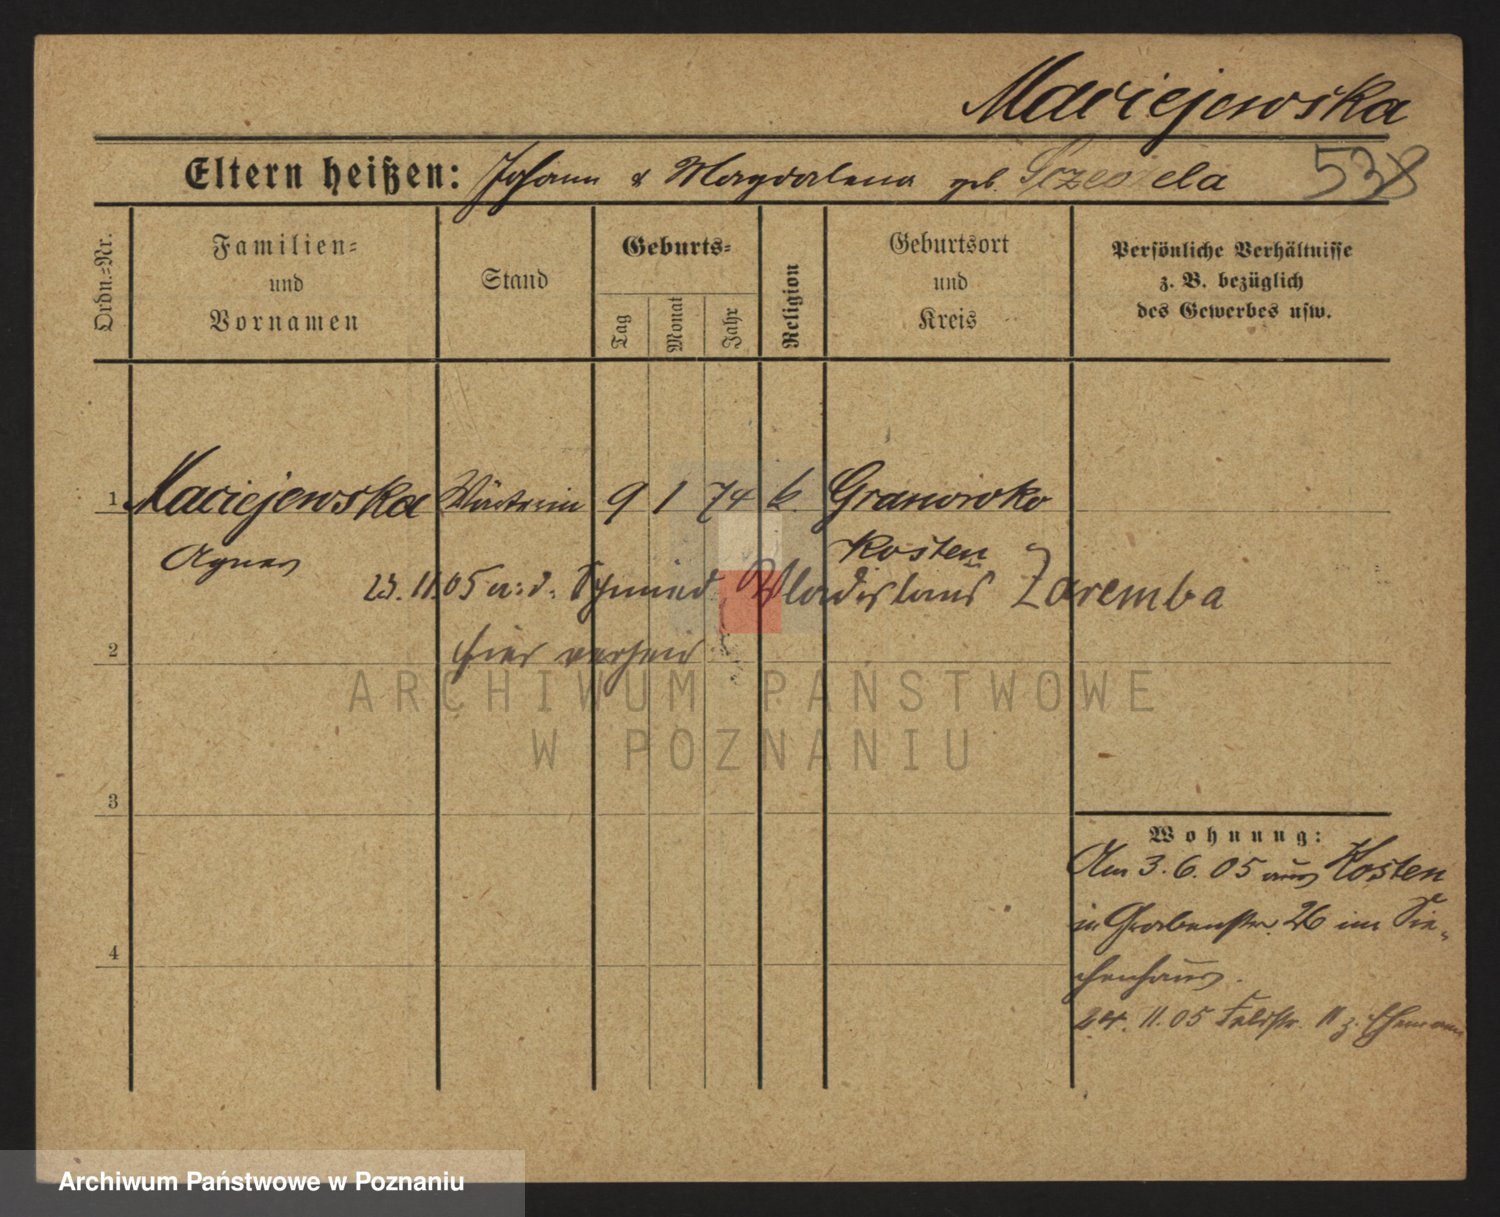 Maciejewska
Eltern heißen: Johann & Magdalena geb. 538
Ordn.-Nr.
Familien-
und
Vornamen
Stand
Geburts-
Tag
Monat
Jahr
Religion
Geburtsort
und
Kreis
Persönliche Verhältnisse
z. B. bezüglich
des Gewerbes usw.
1 Maciejewska Wärterin 9 1 74 k. Granowko
Agnes Kosten
23.11.05 a: d. Schmied Wladislaus Zaremba
2 hier verheir
ARCHIWUM PAŃSTWOWE
W POZNANIU
3
Wohnung:
Am 3.6.05 aus Kosten
in Grabenstr. 26 im Sie-
chenhaus.
4
24.11.05 Feldstr. 11 z. Ehemann
Archiwum Państwowe w Poznaniu